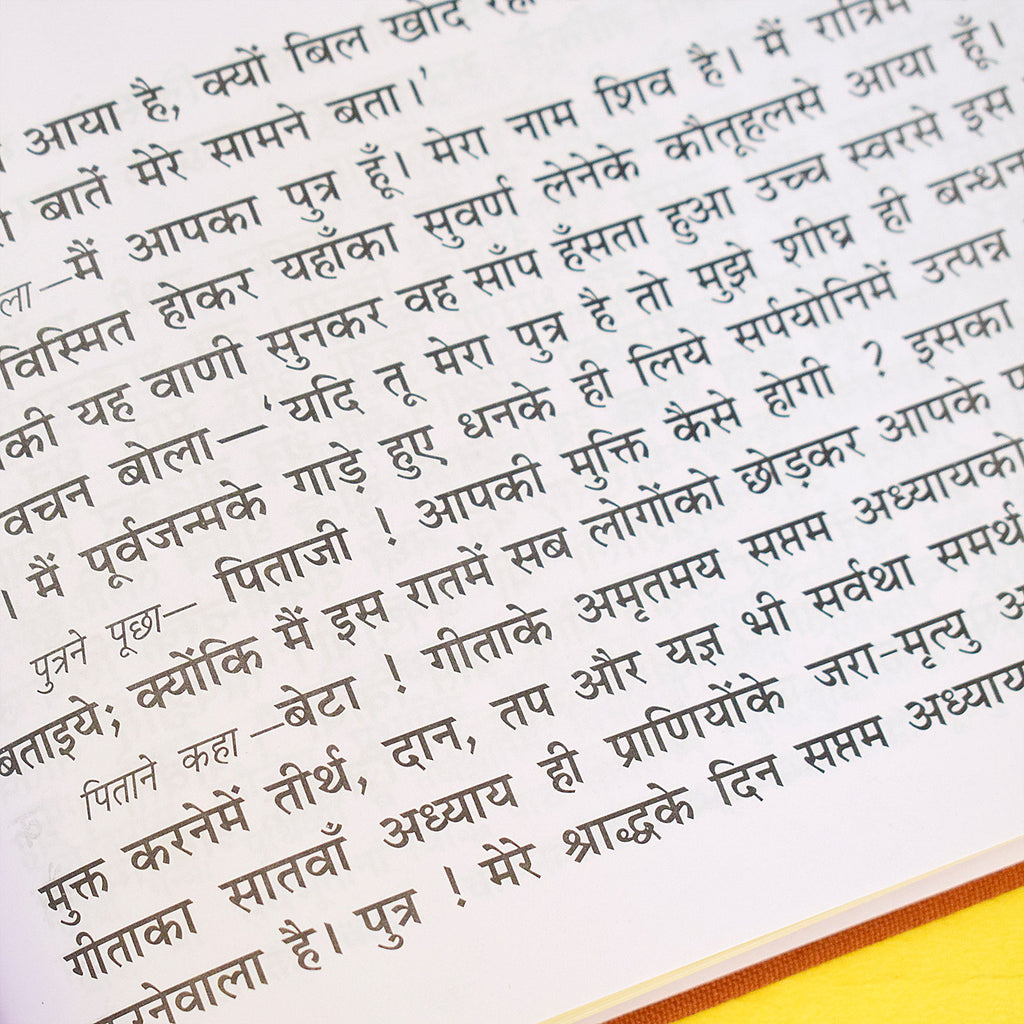 आया है, क्यों बिल खोद
बातें मेरे सामने बता।’
मैं आपका पुत्र हूँ। मेरा नाम शिव है। मैं
विस्मित होकर यहाँका सुवर्ण लेनेके कौतूहलसे आया हूँ।
यह वाणी सुनकर वह साँप हँसता हुआ उच्च स्वरसे इस
वचन बोला—‘यदि तू मेरा पुत्र है तो मुझे शीघ्र ही बन्धन
। मैं पूर्वजन्मके गाड़े हुए धनके ही लिये सर्पयोनिमें उत्पन्न
पुत्रने पूछा— पिताजी ! आपकी मुक्ति कैसे होगी ? इसका
बताइये; क्योंकि मैं इस रातमें सब लोगोंको छोड़कर आपके
पिताने कहा —बेटा ! गीताके अमृतमय सप्तम अध्यायको
मुक्त करनेमें तीर्थ, दान, तप और यज्ञ भी सर्वथा समर्थ
गीताका सातवाँ अध्याय ही प्राणियोंके जरा-मृत्यु
है। पुत्र ! मेरे श्राद्धके दिन सप्तम अध्याय